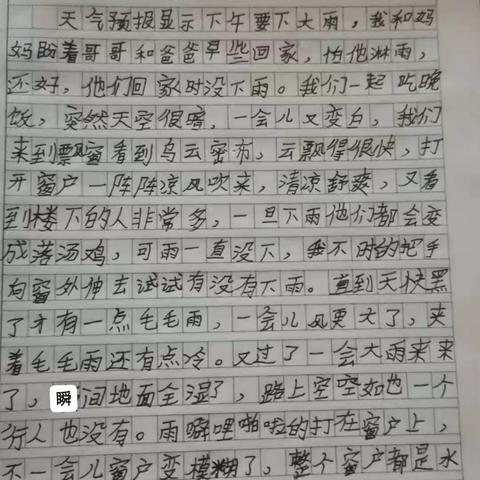 天气预报显示下午要下大雨，我和妈
妈盼着哥哥和爸爸早些回家，怕他淋雨，
还好，他们回家时没下雨。我们一起吃晚
饭，突然天空很暗，一会儿又变白，我们
来到飘窗看到乌云密布，云飘得很快，打
开窗户一阵阵凉风吹来，清凉舒爽，又看
到楼下的人非常多，一旦下雨他们都会变
成落汤鸡，可雨一直没下，我不时的把手
向窗外伸去试试有没有下雨。直到天快黑
了才有一点毛毛雨，一会儿风更大了，夹
着毛毛雨还有点冷。又过了一会大雨来来
了，瞬间地面全湿了，路上空空如也一个
行人也没有。雨噼哩啪啦的打在窗户上，
不一会儿窗户变模糊了，整个窗户都是水